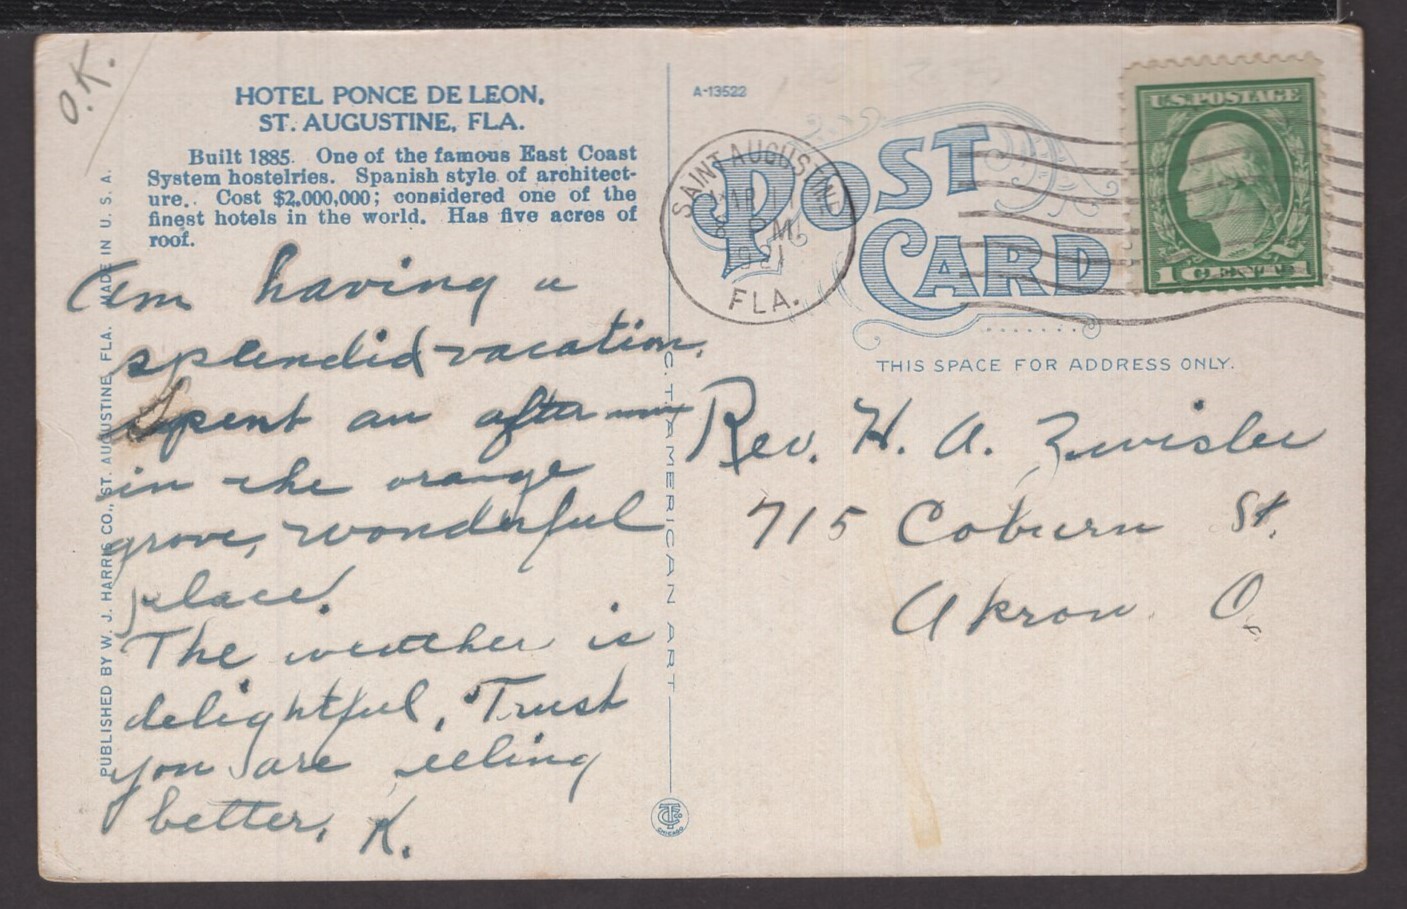 O.K.
HOTEL PONCE DE LEON,
ST. AUGUSTINE, FLA.
Built 1885. One of the famous East Coast
System hostelries. Spanish style of architect-
ure. Cost $2,000,000; considered one of the
finest hotels in the world. Has five acres of
roof.
Am having a
splendid vacation.
Spent an afternoon
in the orange
grove, wonderful
place.
The weather is
delightful, Trust
you are
better, K.
PUBLISHED BY W. J. HARRIS CO., ST. AUGUSTINE, FLA. MADE IN U. S. A.
C. T. AMERICAN ART
CHICAGO
A-13522
POST
CARD
SAINT AUGUSTINE
PM
1921
FLA.
U.S. POSTAGE
1 CENT 1
THIS SPACE FOR ADDRESS ONLY.
Rev. H. A. Zwisler
715 Coburn St.
Akron O.